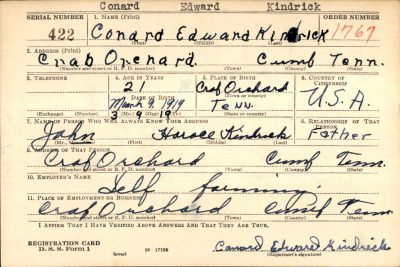 Conard Edward Kindrick
SERIAL NUMBER 1. NAME (Print) ORDER NUMBER
422 Conard Edward Kindrick 1767
(First) (Middle) (Last)
2. ADDRESS (Print)
Crab Orchard Cumb Tenn.
(Number and street or R. F. D. number) (Town) (County) (State)
3. TELEPHONE 4. AGE IN YEARS 5. PLACE OF BIRTH 6. COUNTRY OF CITIZENSHIP
21 Crab Orchard
DATE OF BIRTH (Town or county)
March 9, 1919 Tenn. U.S.A.
3 - 9 19
7. NAME OF PERSON WHO WILL ALWAYS KNOW YOUR ADDRESS 8. RELATIONSHIP OF THAT PERSON
John Horace Kindrick Father
9. ADDRESS OF THAT PERSON
Crab Orchard Cumb Tenn.
(Number and street or R. F. D. number) (Town) (County) (State)
10. EMPLOYER'S NAME
Self farming
11. PLACE OF EMPLOYMENT OR BUSINESS
Crab Orchard Cumb Tenn
(Number and street or R. F. D. number) (Town) (County) (State)
I AFFIRM THAT I HAVE VERIFIED ABOVE ANSWERS AND THAT THEY ARE TRUE.
REGISTRATION CARD
D. S. S. Form 1 (over) 16—17105 Conard Edward Kindrick
(Registrant's signature)